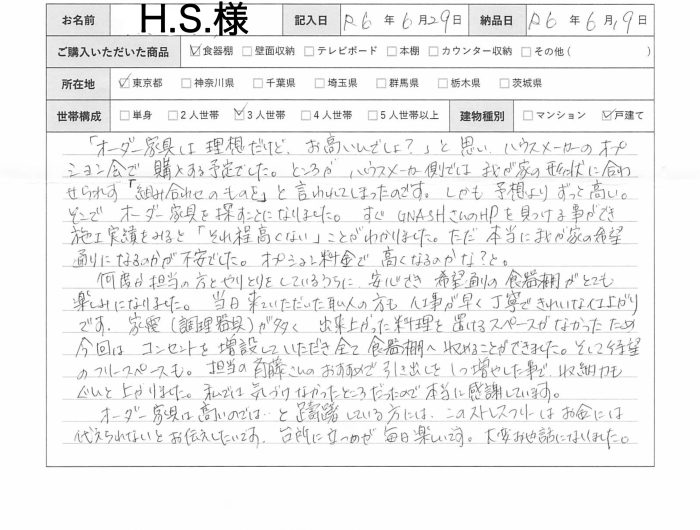 お名前 H.S.様 記入日 R6年6月29日 納品日 R6年6月19日
ご購入いただいた商品 ☑食器棚 □壁面収納 □テレビボード □本棚 □カウンター収納 □その他( )
所在地 ☑東京都 □神奈川県 □千葉県 □埼玉県 □群馬県 □栃木県 □茨城県
世帯構成 □単身 □2人世帯 ☑3人世帯 □4人世帯 □5人世帯以上 建物種別 □マンション ☑戸建て
「オーダー家具は理想だけど、お高いんでしょ?」と思い、ハウスメーカーのオプ
ション会で購入する予定でした。ところが ハウスメーカー側では 我が家の形状に合わ
せられず「組み合わせのものを」と言われてしまったのです。しかも予想よりずっと高い。
そこで オーダー家具を探すことになりました。すぐ GNASHさんのHPを見つける事ができ
施工実績をみると「それ程高くない」ことがわかりました。ただ 本当に我が家の希望
通りになるのかが不安でした。オプション料金で高くなるのかな?と。
何度か担当の方とやりとりをしているうちに、安心でき 希望通りの食器棚がとても
楽しみになりました。当日来ていただいた取付の方も 仕事が早く丁寧できれいな仕上がり
です。家電(調理器具)が多く 出来上がった料理を置けるスペースがなかったため
今回は コンセントを増設していただき全て食器棚へ収めることができました。そして待望
のフリースペースも。担当の斉藤さんのおすすめで引き出しを1つ増やした事で収納力も
ぐんと上がりました。私では気づけなかったところだったので本当に感謝しています。
オーダー家具は高いのでは…と躊躇している方には、このストレスフリーはお金には
代えられないとお伝えしたいです。台所に立つのが毎日楽しいです。大変お世話になりました。